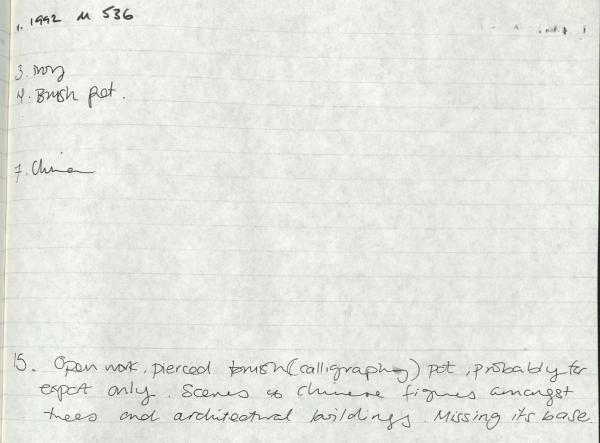 1. 1992 M 536
3. Ivory
4. Brush pot.
7. China
15. Open work, pierced brush (calligraphy) pot, probably for
export only. Scenes of Chinese figures amongst
trees and architectural buildings. Missing its base.